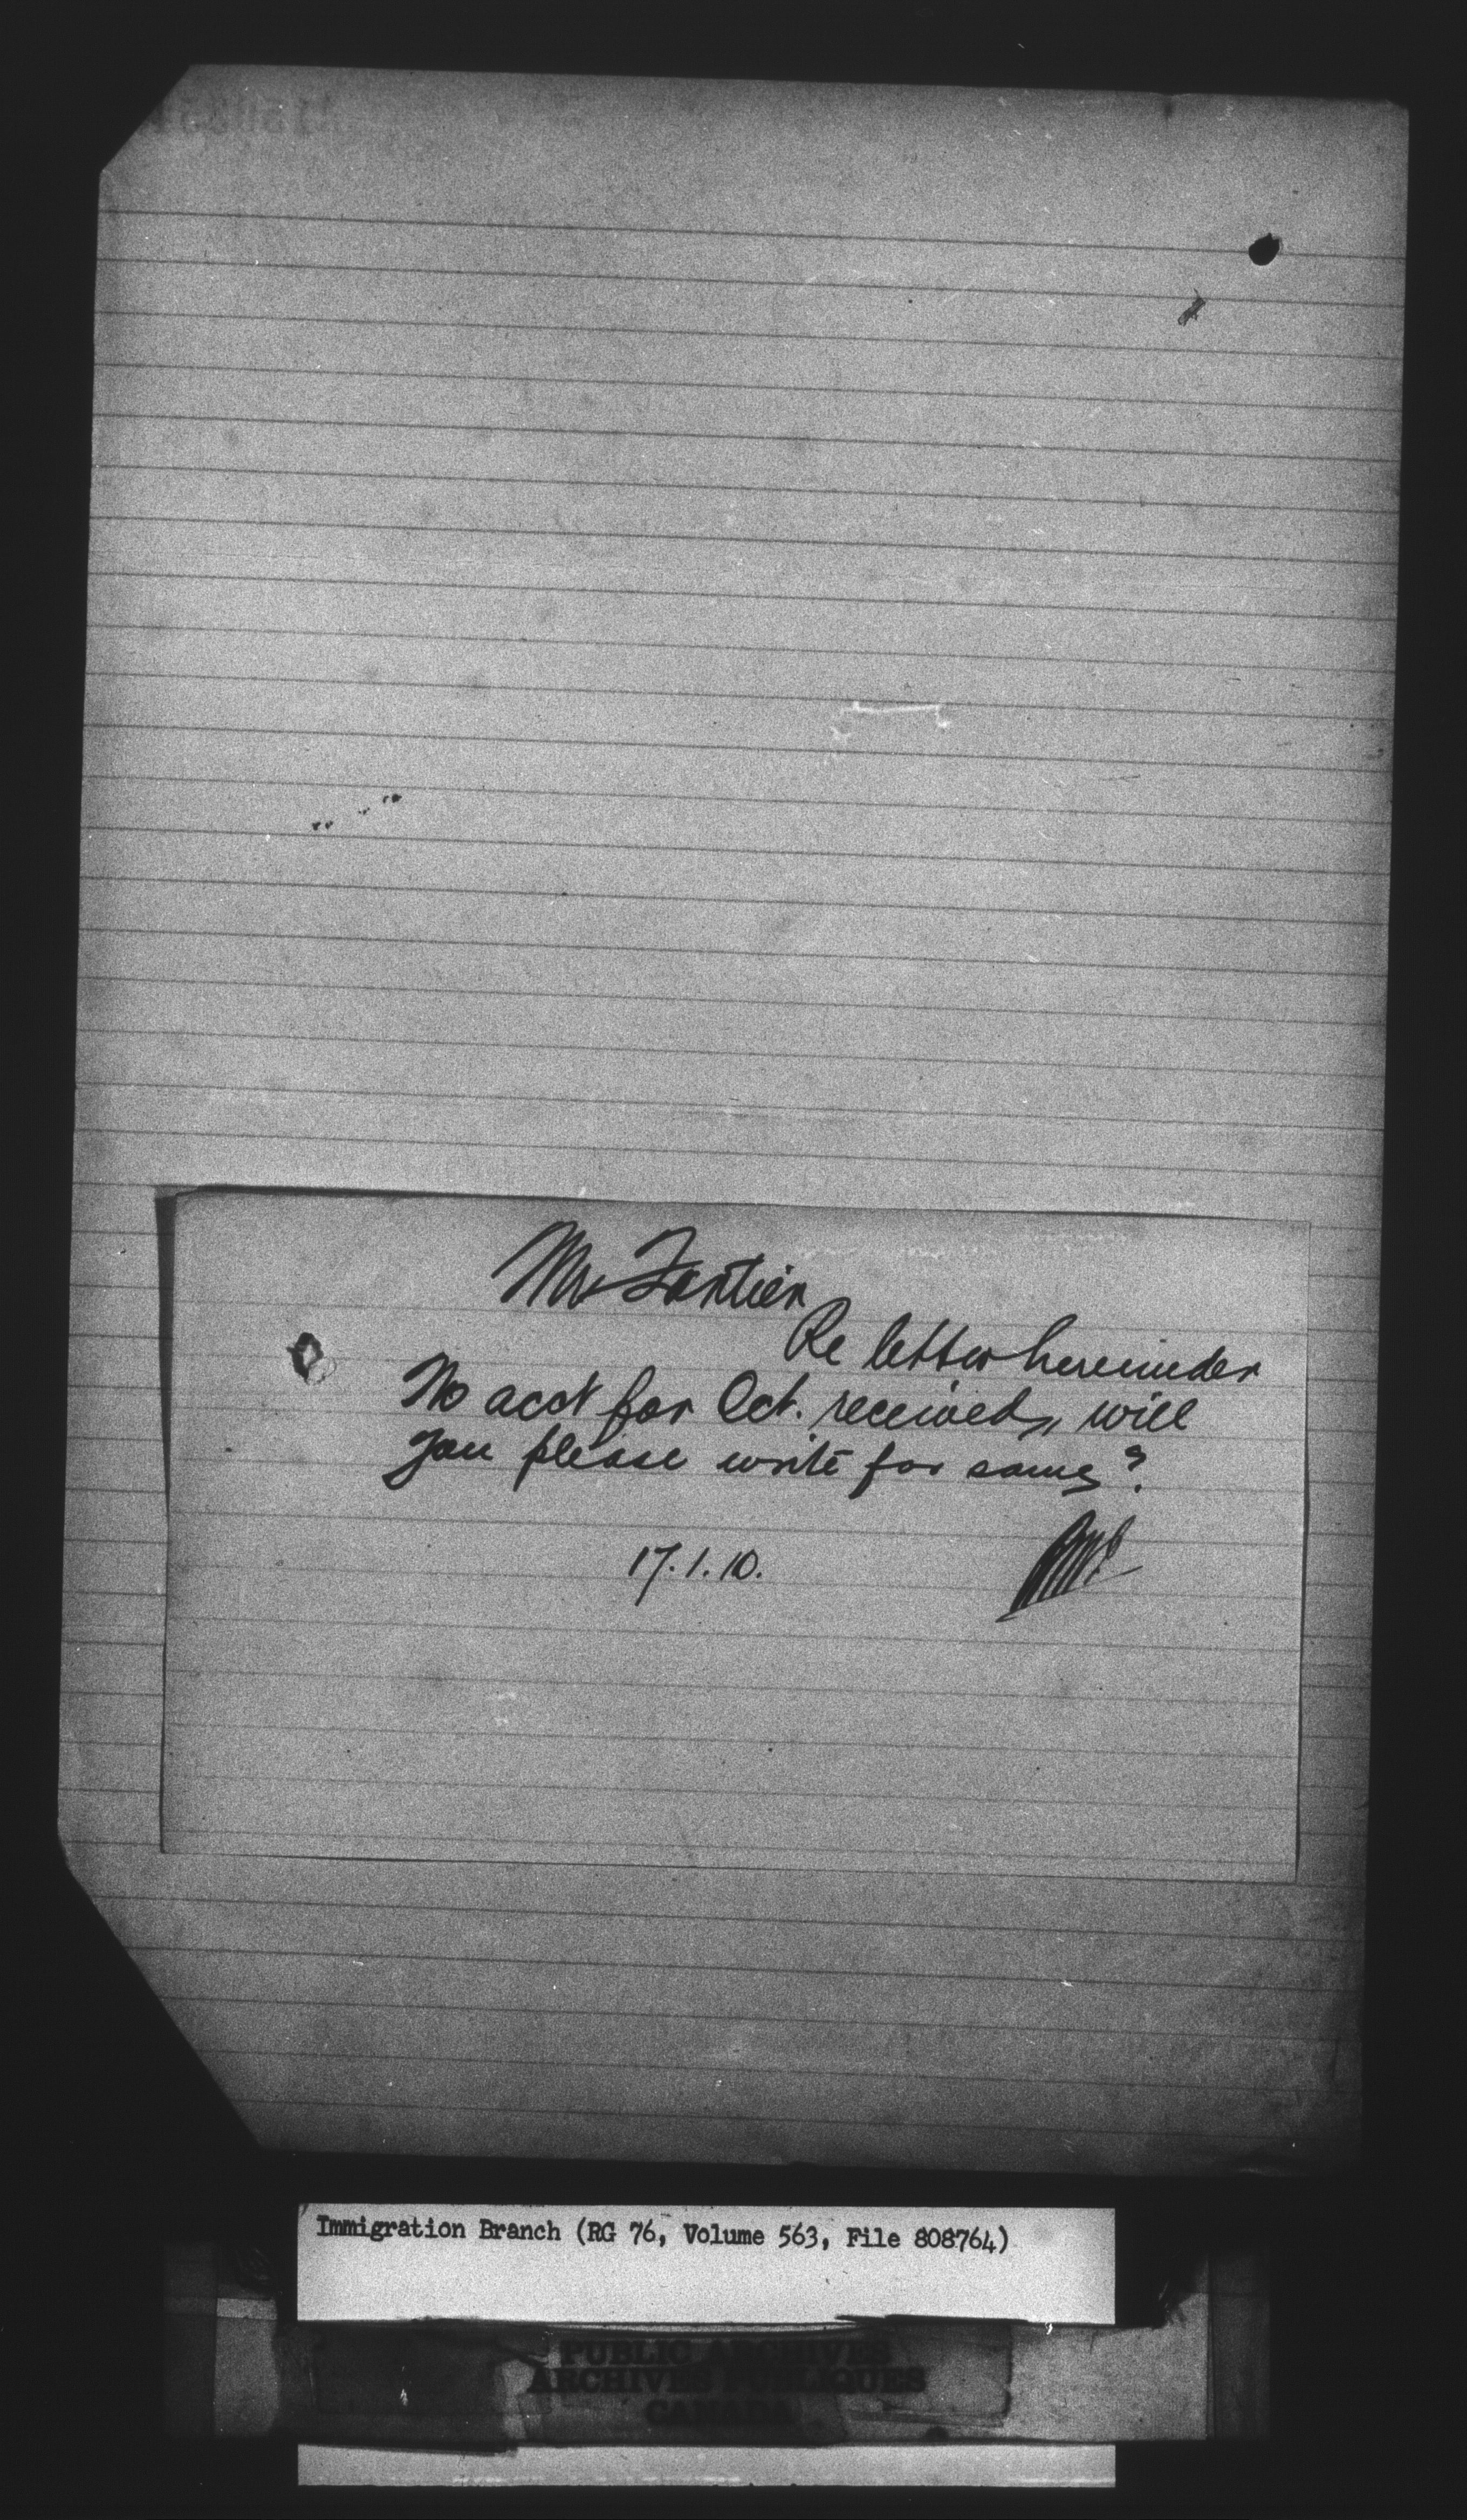 Mr Fortier
Re letter hereunder
No acct for Oct. received, will
you please write for same?
17.1.10.
Immigration Branch (RG 76, Volume 563, File 808764)
PUBLIC ARCHIVES
ARCHIVES PUBLIQUES
CANADA